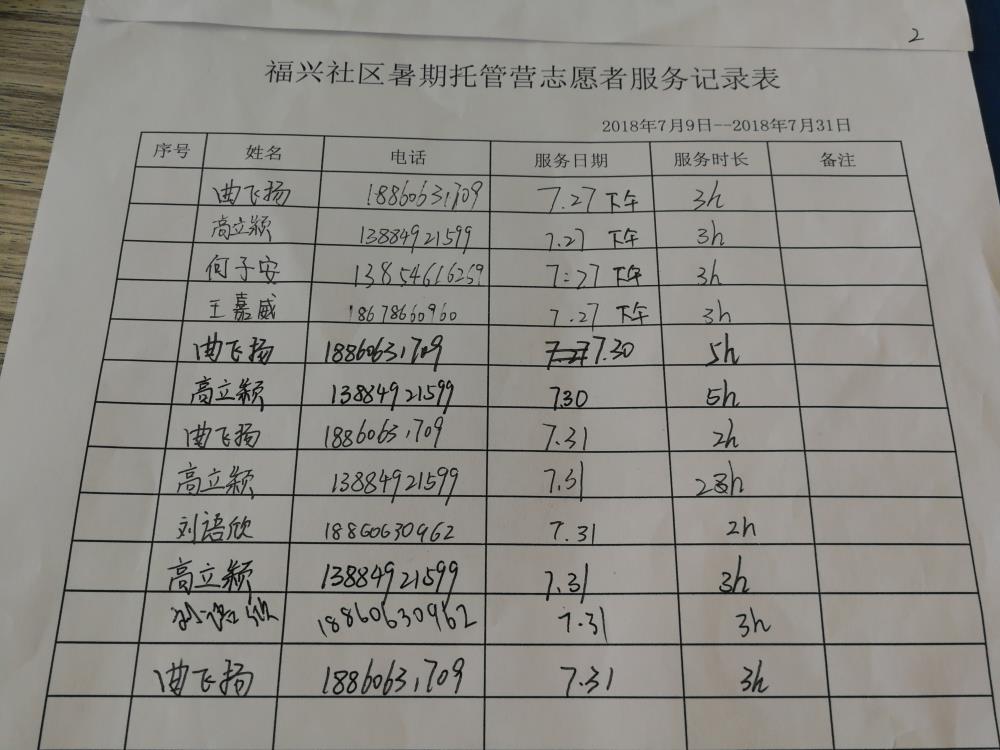 2
福兴社区暑期托管营志愿者服务记录表
2018年7月9日--2018年7月31日
序号 姓名 电话 服务日期 服务时长 备注
曲飞扬 18860631709 7.27 下午 3h
高立颖 13884921599 7.27 下午 3h
何子安 13854616259 7:27 下午 3h
王嘉威 18678660960 7.27 下午 3h
曲飞扬 18860631709 7.30 5h
高立颖 13884921599 7.30 5h
曲飞扬 18860631709 7.31 2h
高立颖 13884921599 7.31 2h
刘语欣 18860630962 7.31 2h
高立颖 13884921599 7.31 3h
刘语欣 18860630962 7.31 3h
曲飞扬 18860631709 7.31 3h